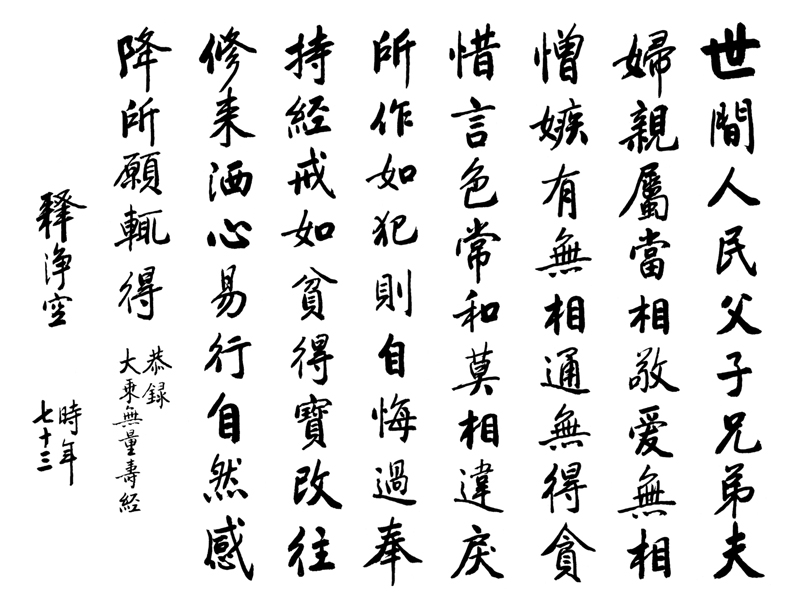 世間人民父子兄弟夫
婦親屬當相敬愛無相
憎嫉有無相通無得貪
惜言色常和莫相違戾
所作如犯則自悔過奉
持經戒如貧得寶改往
修来洒心易行自然感
降所願輒得
恭録
大乘無量壽經
釋淨空
時年
七十三